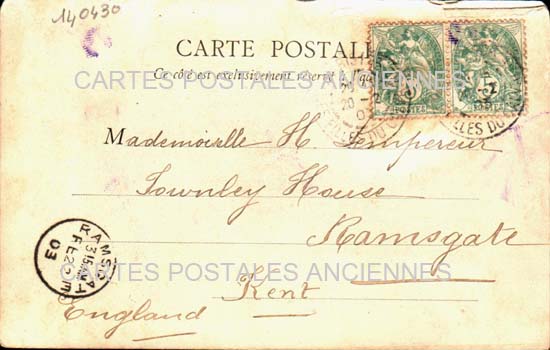 140430
CARTE POSTALE
Ce côté est exclusivement réservé à l'
CARTES POSTALES ANCIENNES
5 5
POSTES
Mademoiselle H. Lempereur
Townley House
Ramsgate
Kent
England
RAMSGATE
3 15 PM
FE 20
03
CARTES POSTALES ANCIENNES